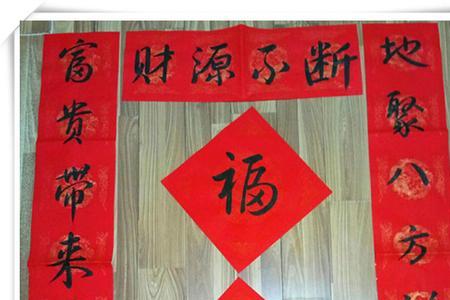 财源不断
富贵帶来
地聚八方
福